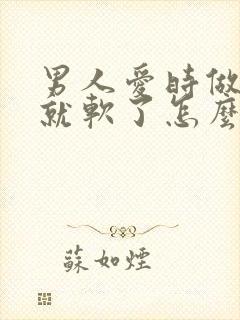 男人愛時做
就軟了怎麼
蘇如煙